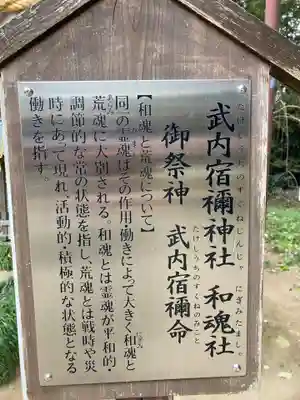 武内宿禰神社 和魂社
たけしうちのすくねじんじゃ にぎみたましゃ
御祭神 武内宿禰命
たけしうちのすくねのみこと
【和魂と荒魂について】
同一の霊魂はその作用・働きによって大きく和魂と
荒魂に大別される。和魂とは霊魂が平和的・
調節的な常の状態を指し、荒魂とは戦時や災
時にあって現れ、活動的・積極的な状態となる
働きを指す。